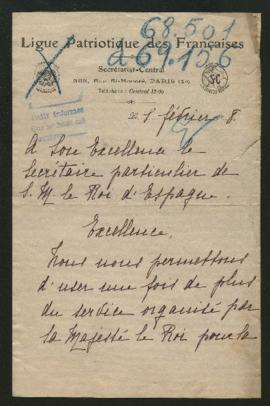 68.501
a 69.156
Ligue Patriotique des Françaises
Secrétariat-Central
Rue St-Honoré, PARIS
Téléphone : Central
février 8.
A Son Excellence le
Secrétaire particulier de
S. M le Roi d'Espagne.
Excellence,
Nous nous permettons
d'user une fois de plus
du service organisé par
sa Majesté le Roi pour la